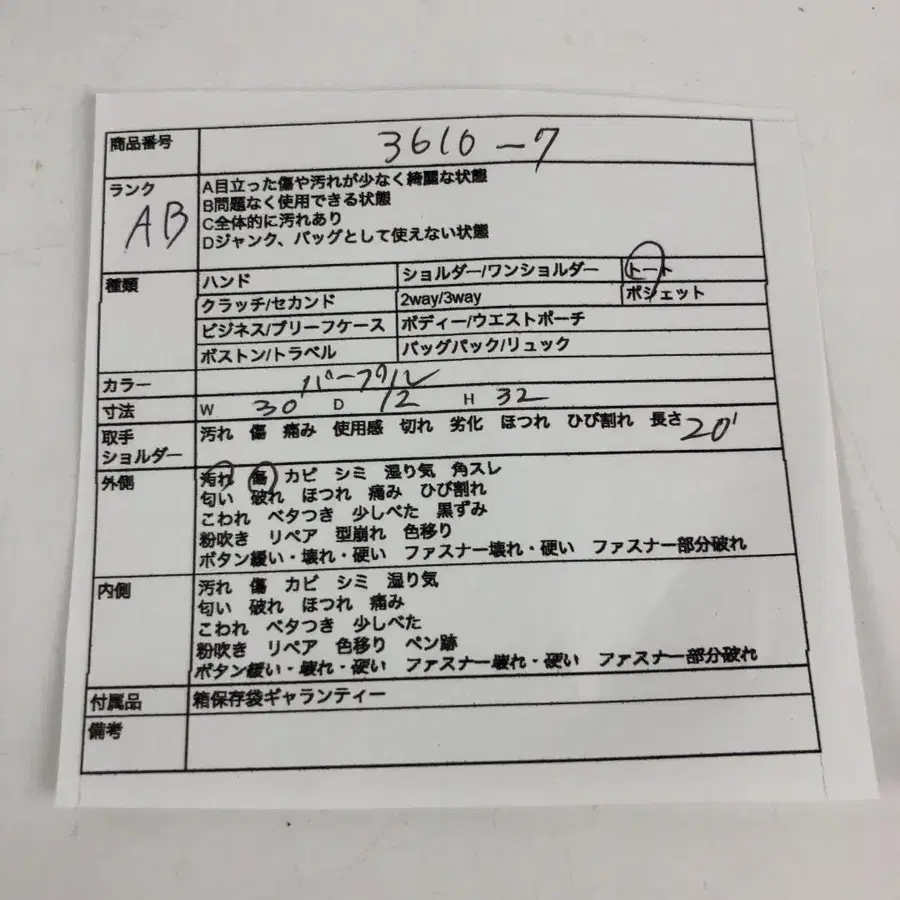 商品番号 3610-7
ランク AB
A目立った傷や汚れが少なく綺麗な状態
B問題なく使用できる状態
C全体的に汚れあり
Dジャンク、バッグとして使えない状態
種類 ハンド ショルダー/ワンショルダー トート
クラッチ/セカンド 2way/3way ポシェット
ビジネス/ブリーフケース ボディー/ウエストポーチ
ボストン/トラベル バッグパック/リュック
カラー パープル
寸法 W 30 D 12 H 32
取手 汚れ 傷 痛み 使用感 切れ 劣化 ほつれ ひび割れ 長さ 20
ショルダー
外側 汚れ 傷 カビ シミ 湿り気 角スレ
匂い 破れ ほつれ 痛み ひび割れ
こわれ ベタつき 少しべた 黒ずみ
粉吹き リペア 型崩れ 色移り
ボタン緩い・壊れ・硬い ファスナー壊れ・硬い ファスナー部分破れ
内側 汚れ 傷 カビ シミ 湿り気
匂い 破れ ほつれ 痛み
こわれ ベタつき 少しべた
粉吹き リペア 色移り ペン跡
ボタン緩い・壊れ・硬い ファスナー壊れ・硬い ファスナー部分破れ
付属品 箱保存袋ギャランティー
備考